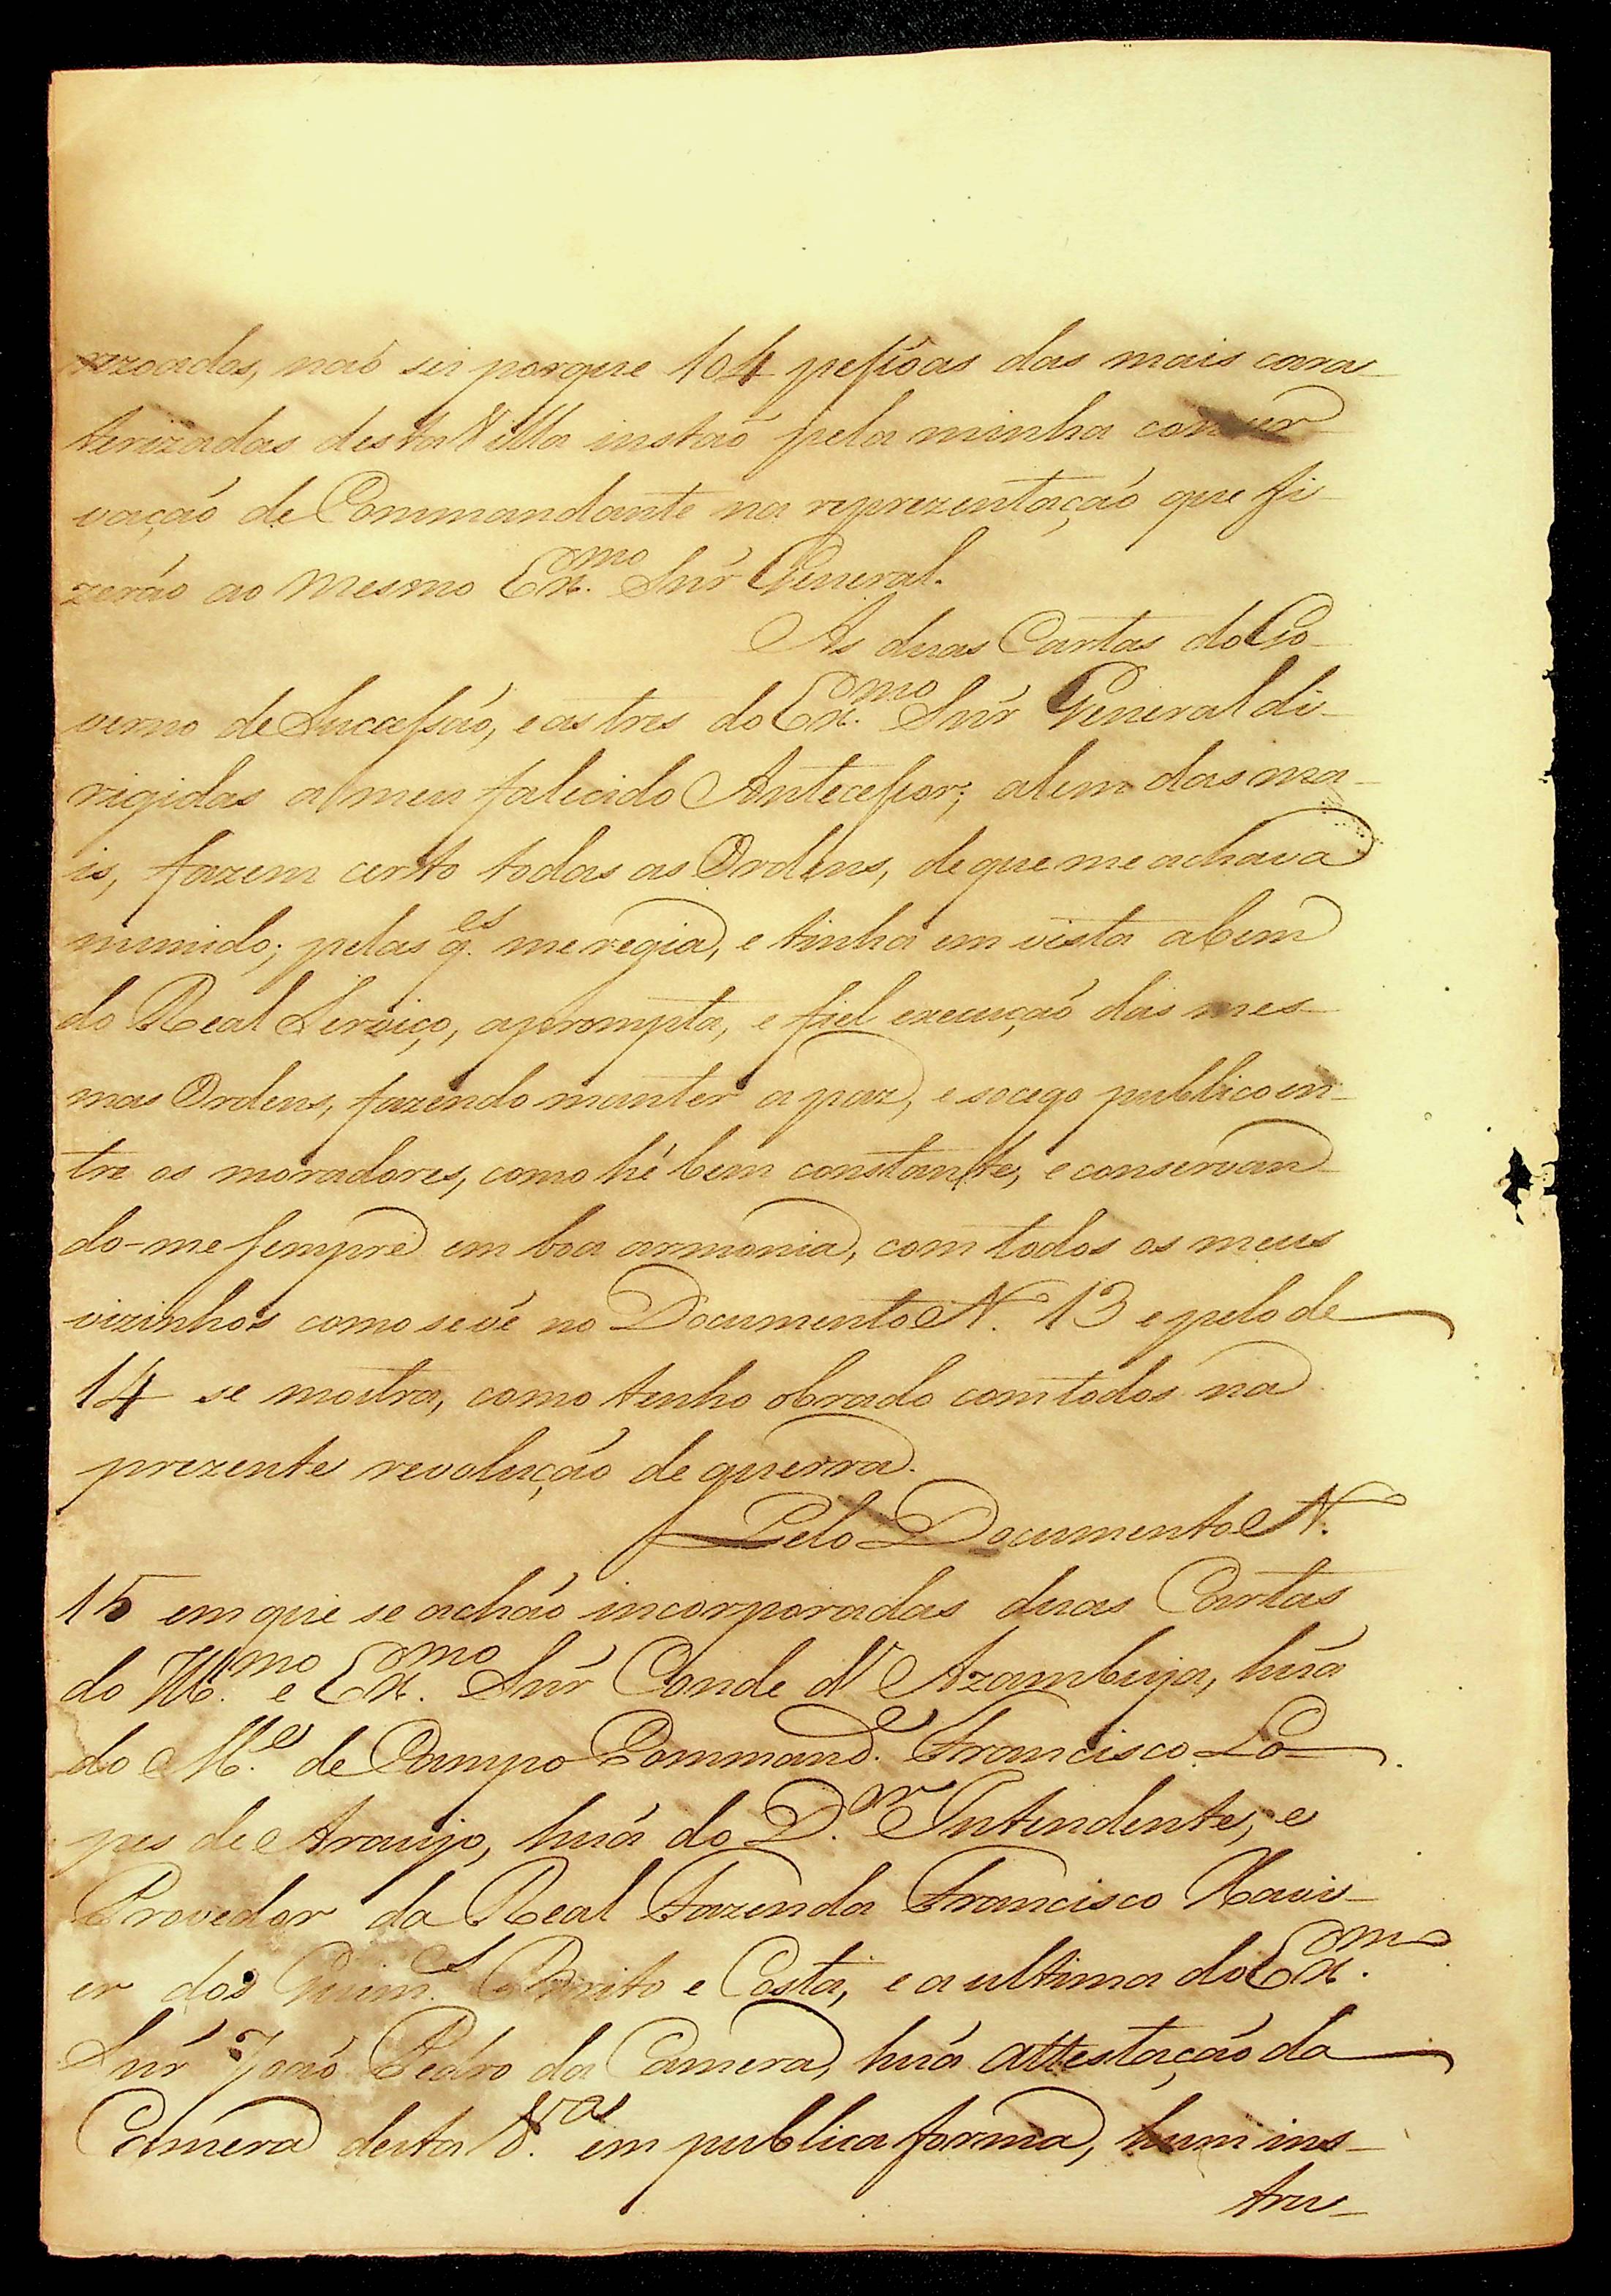 rezoadas, naõ sei porque 104 peſsoas das mais cara-
terizadas desta Villa instaõ pela minha conser-
vaçaõ de Commandante na reprezentaçaõ que fi-
zeraõ ao mesmo Ex.mo Snr̃ General.
As duas Cartas do Go-
verno de Suceſsaõ, e as tres do Ex.mo Snr̃ General di-
rigidas a meu falecido Anteceſsor; alem das ma-
is, fazem certo todas as Ordens, de que me achava
munido; pelas q.es me regia, e tinha em vista a bem
do Real Serviço, a prompta, e fiel execuçaõ das mes-
mas Ordens, fazendo manter a paz, e socego publico en-
tre os moradores, como hé bem constante, e conservan-
do-me sempre em boa armonia, com todos os meus
vizinhos como se vê no Documento N.º 13 e pelo de
14 se mostra, como tenho obrado com todos na
prezente revoluçaõ de guerra.
Pelo Documento N.º
15 em que se achaõ incorporadas duas Cartas
do Ill.mo e Ex.mo Snr̃ Conde d'Azambuja, huã
do M.e de Campo Command.e Francisco Lo-
pes de Araujo, huã do D.or Intendente, e
Provedor da Real Fazenda Francisco Xavi-
er dos Guim.s Brito e Costa, e a ultima do Ex.mo
Snr̃ Joaõ Pedro da Camera, huã attestaçaõ da
Camera desta V.a em publica forma, hum ins-
tru-